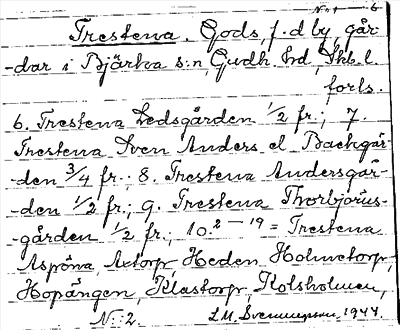 Nr 1 6.
Trestena. Gods, f.d by, går-
-dar i Bjärka s:n, Gudh. hd, Skb. l.
forts.
6. Trestena Ledsgården 1/2 fr.; 7.
Trestena Sven Anders el Backgår-
-den 3/4 fr.; 8. Trestena Andersgår-
-den 1/2 fr.; 9. Trestena Thorbjörns-
-gården 1/2 fr.; 10.2—19 = Trestena
Aspöna, Aetorp, Heden, Holmetorp,
Hopängen, Klastorp, Kolsholmen,
N:2. L.M. Svennungsson, 1944.